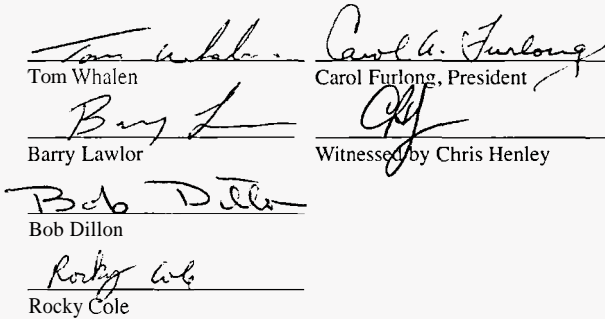 Tom Whalen
Tom Whalen
Barry L
Barry Lawlor
Bob Dillon
Bob Dillon
Rocky Cole
Rocky Cole
Carol A. Furlong
Carol Furlong, President
Witnessed by Chris Henley